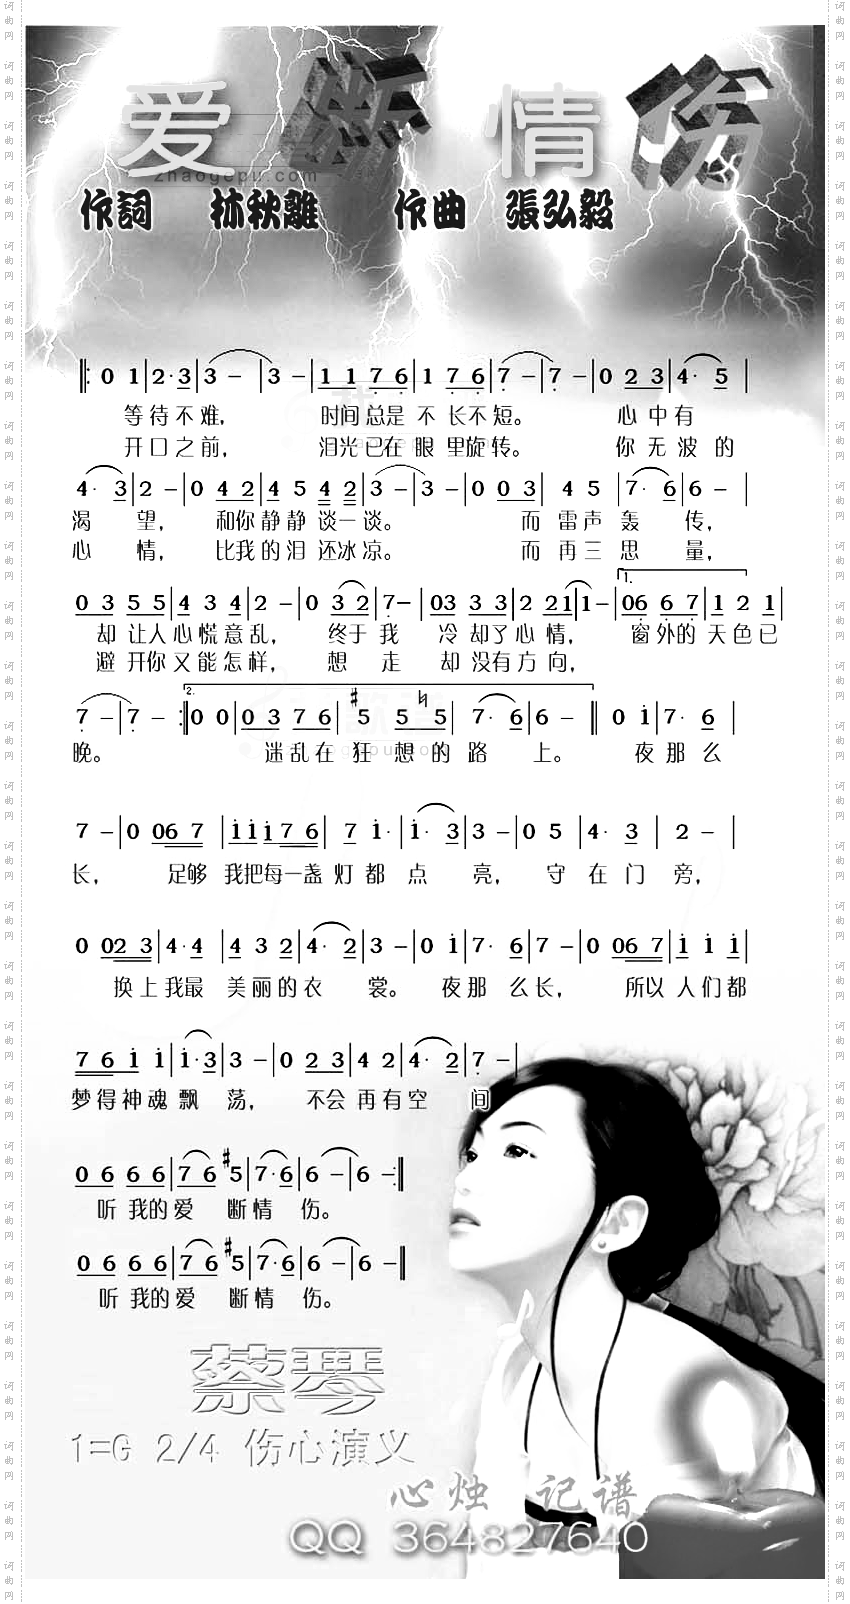 爱断情伤
zhaogepu.com
作詞 林秋離 作曲 張弘毅
‖: 0 1 | 2· 3 | 3 - | 3 - | 1 1 7 6 | 1 7 6 | 7 - | 7 - | 0 2 3 | 4· 5 |
等待不难， 时间总是不长不短。 心中有
开口之前， 泪光已在眼里旋转。 你无波的
4· 3 | 2 - | 0 4 2 | 4 5 4 2 | 3 - | 3 - | 0 0 3 | 4 5 | 7· 6 | 6 - |
渴望， 和你静静谈一谈。 而雷声轰传，
心情， 比我的泪还冰凉。 而再三思量，
0 3 5 5 | 4 3 4 | 2 - | 0 3 2 | 7 - | 03 3 3 | 2 2 2 1 | 1 - | 1. 06 6 7 | 1 2 1 |
却让人心慌意乱， 终于我冷却了心情， 窗外的天色已
避开你又能怎样， 想走却没有方向，
7 - | 7 - :‖ 2. 0 0 | 0 3 7 6 | #5 ♮5 5 | 7· 6 | 6 - ‖ 0 1 | 7· 6 |
晚。 迷乱在狂想的路上。 夜那么
7 - | 0 06 7 | 1 1 1 7 6 | 7 1· | 1· 3 | 3 - | 0 5 | 4· 3 | 2 - |
长， 足够我把每一盏灯都点亮， 守在门旁，
0 02 3 | 4· 4 | 4 3 2 | 4· 2 | 3 - | 0 1 | 7· 6 | 7 - | 0 06 7 | 1 1 1 |
换上我最美丽的衣裳。 夜那么长， 所以人们都
7 6 1 1 | 1· 3 | 3 - | 0 2 3 | 4 2 | 4· 2 | 7 - |
梦得神魂飘荡， 不会再有空间
0 6 6 6 | 7 6 #5 | 7· 6 | 6 - | 6 - :‖
听我的爱断情伤。
0 6 6 6 | 7 6 #5 | 7· 6 | 6 - | 6 - ‖
听我的爱断情伤。
蔡琴
1=G 2/4 伤心演义
心烛 记谱
QQ 364827640